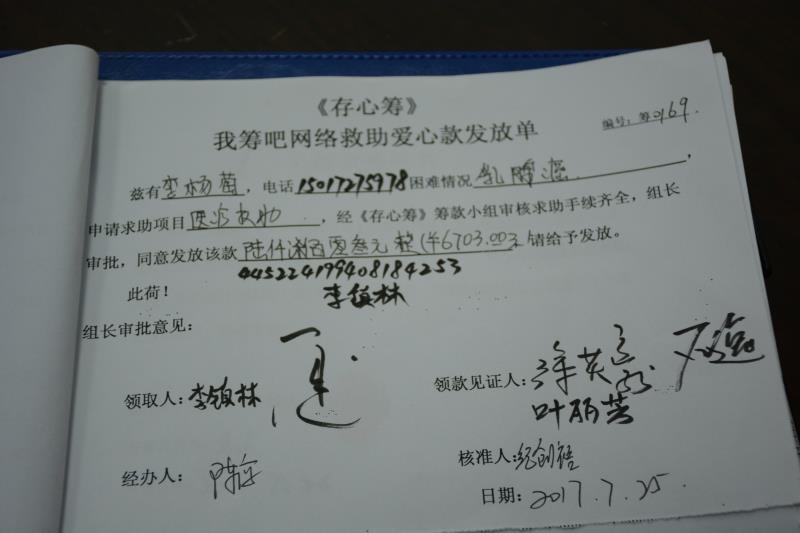 《存心筹》
我筹吧网络救助爱心款发放单
编号：筹0169.
兹有李杨莓，电话15017275978困难情况乳腺癌，
申请求助项目医疗救助，经《存心筹》筹款小组审核求助手续齐全，组长
审批，同意发放该款陆仟柒百零叁元整(¥6703.00元)请给予发放。
445224199408184253
此荷！
李镇林
组长审批意见：
领取人：李镇林
领款见证人：
叶丽芸
经办人：陈
核准人：
日期：2017.7.25.